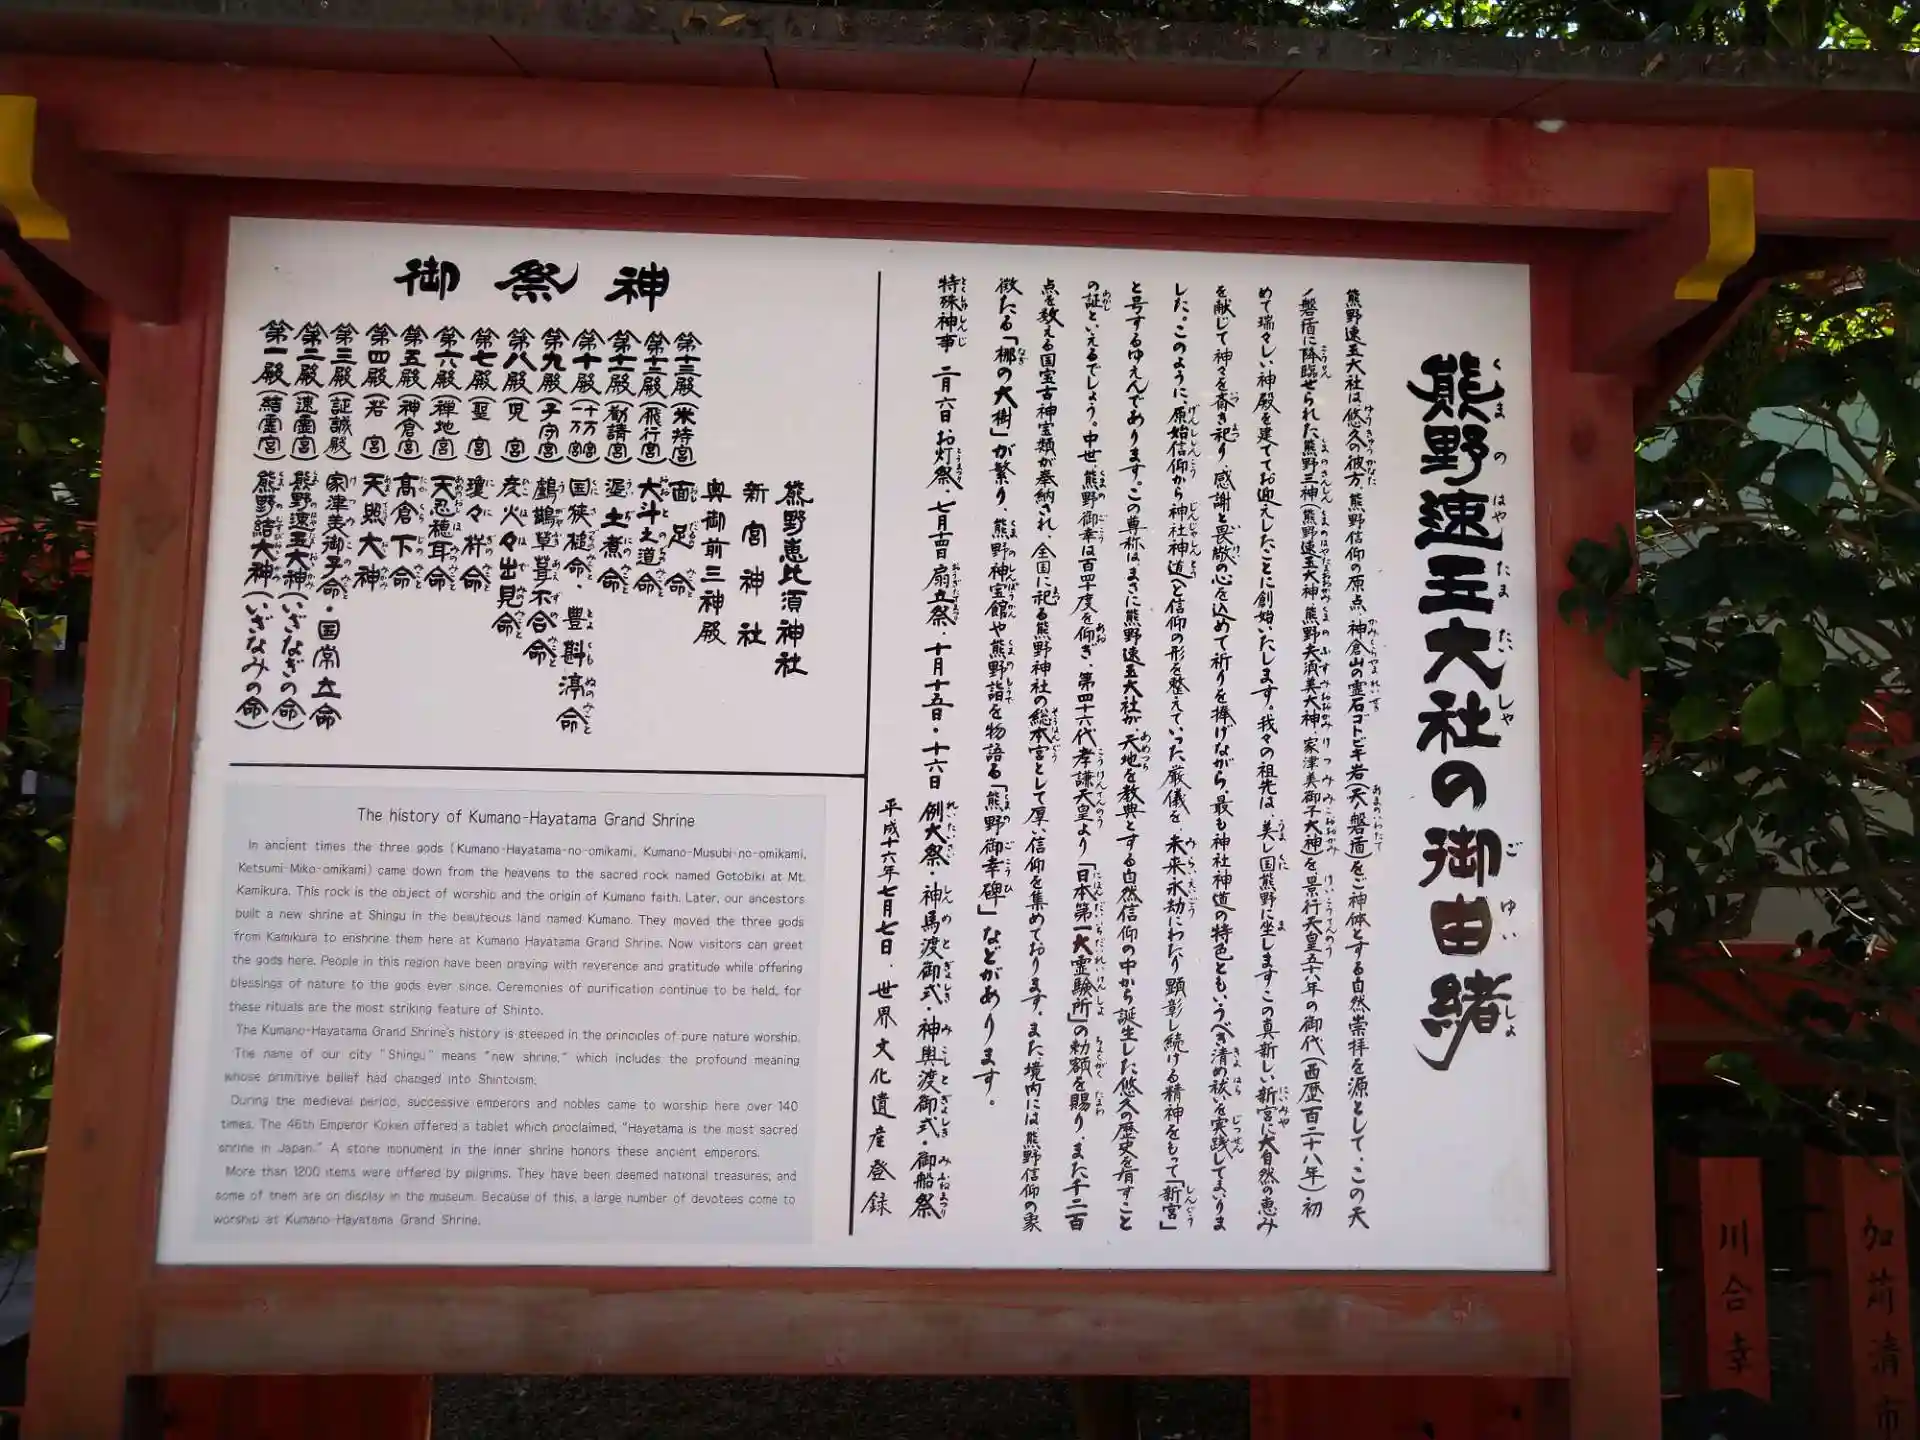 熊野速玉大社の御由緒
熊野速玉大社は悠久の彼方、熊野信仰の原点、神倉山の霊石ゴトビキ岩(天磐盾)をご神体とする自然崇拝を源として、この天
ノ磐盾に降臨せられた熊野三神(熊野速玉大神・熊野夫須美大神・家津美御子大神)を景行天皇五十八年の御代(西歴百二十八年)初
めて瑞々しい神殿を建ててお迎えしたことに創始いたします。我々の祖先は、美し国熊野に坐しますこの真新しい新宮に大自然の恵み
を献じて神々を斎き祀り、感謝と畏敬の心を込めて祈りを捧げながら、最も神社神道の特色ともいうべき清め祓いを実践してまいりま
した。このように、原始信仰から神社神道へと信仰の形を整えていった厳儀を、未来永劫にわたり顕彰し続ける精神をもって「新宮」
と号するゆえんであります。この尊称はまさに熊野速玉大社が、天地を教典とする自然信仰の中から誕生した悠久の歴史を有すこと
の証といえるでしょう。中世、熊野御幸は百四十度を仰ぎ、第四十六代孝謙天皇より「日本第一大霊験所」の勅額を賜り、また千二百
点を数える国宝古神宝類が奉納され、全国に祀る熊野神社の総本宮として厚い信仰を集めております。また境内には熊野信仰の象
徴たる「梛の大樹」が繁り、熊野神宝館や熊野詣を物語る「熊野御幸碑」などがあります。
特殊神事 二月六日お灯祭・七月十四日扇立祭・十月十五日・十六日 例大祭・神馬渡御式・神輿渡御式・御船祭
平成十六年七月七日・世界文化遺産登録
御祭神
熊野恵比須神社
新宮神社
奥御前三神殿
第十三殿(米持宮) 面足命
第十二殿(飛行宮) 大斗之道命
第十一殿(勧請宮) 渥土煮命
第十殿(一万宮十万宮) 国狭槌命・豊斟渟命
第九殿(子守宮) 鸕鶿草葺不合命
第八殿(児宮) 彦火々出見命
第七殿(聖宮) 瓊々杵命
第六殿(禅地宮) 天忍穂耳命
第五殿(神倉宮) 高倉下命
第四殿(若宮) 天照大神
第三殿(証誠殿) 家津美御子命・国常立命
第二殿(速霊宮) 熊野速玉大神(いざなぎの命)
第一殿(結霊宮) 熊野結大神(いざなみの命)
The history of Kumano-Hayatama Grand Shrine
In ancient times the three gods (Kumano-Hayatama-no-omikami, Kumano-Musubi-no-omikami,
Ketsumi-Miko-omikami) came down from the heavens to the sacred rock named Gotobiki at Mt.
Kamikura. This rock is the object of worship and the origin of Kumano faith. Later, our ancestors
built a new shrine at Shingu in the beauteous land named Kumano. They moved the three gods
from Kamikura to enshrine them here at Kumano Hayatama Grand Shrine. Now visitors can greet
the gods here. People in this region have been praying with reverence and gratitude while offering
blessings of nature to the gods ever since. Ceremonies of purification continue to be held, for
these rituals are the most striking feature of Shinto.
The Kumano-Hayatama Grand Shrine's history is steeped in the principles of pure nature worship.
The name of our city "Shingu" means "new shrine," which includes the profound meaning
whose primitive belief had changed into Shintoism.
During the medieval period, successive emperors and nobles came to worship here over 140
times. The 46th Emperor Koken offered a tablet which proclaimed, "Hayatama is the most sacred
shrine in Japan." A stone monument in the inner shrine honors these ancient emperors.
More than 1200 items were offered by pilgrims. They have been deemed national treasures, and
some of them are on display in the museum. Because of this, a large number of devotees come to
worship at Kumano-Hayatama Grand Shrine.
川合幸
加苅清市